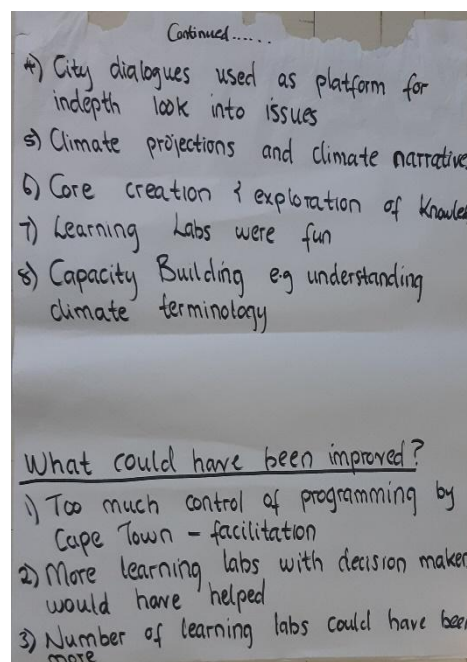 Continued......
4) City dialogues used as platform for
indepth look into issues
5) Climate projections and climate narrative
6) Core creation & exploration of knowle
7) Learning Labs were fun
8) Capacity Building e.g understanding
climate terminology
What could have been improved?
1) Too much control of programming by
Cape Town - facilitation
2) More learning labs with decision maker
would have helped
3) Number of learning labs could have been
more